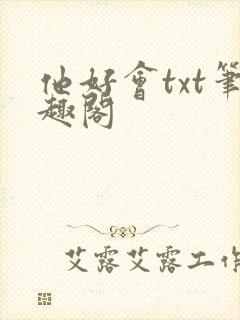 他好會txt筆
趣閣
艾露艾露工作